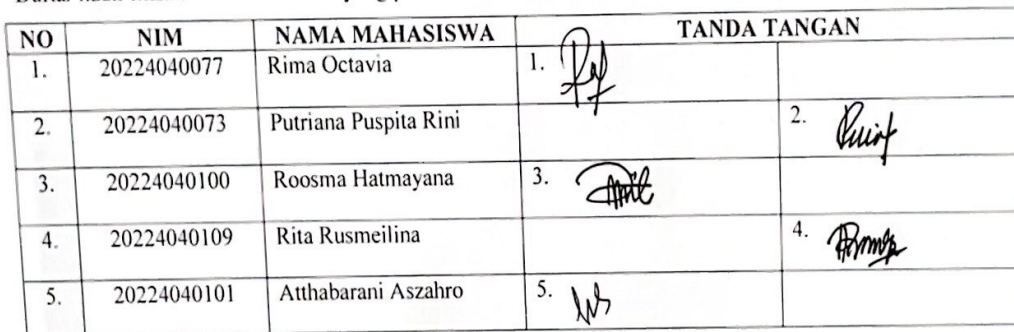 NO NIM NAMA MAHASISWA TANDA TANGAN
1. 20224040077 Rima Octavia 1.
2. 20224040073 Putriana Puspita Rini 2.
3. 20224040100 Roosma Hatmayana 3.
4. 20224040109 Rita Rusmeilina 4.
5. 20224040101 Atthabarani Aszahro 5.